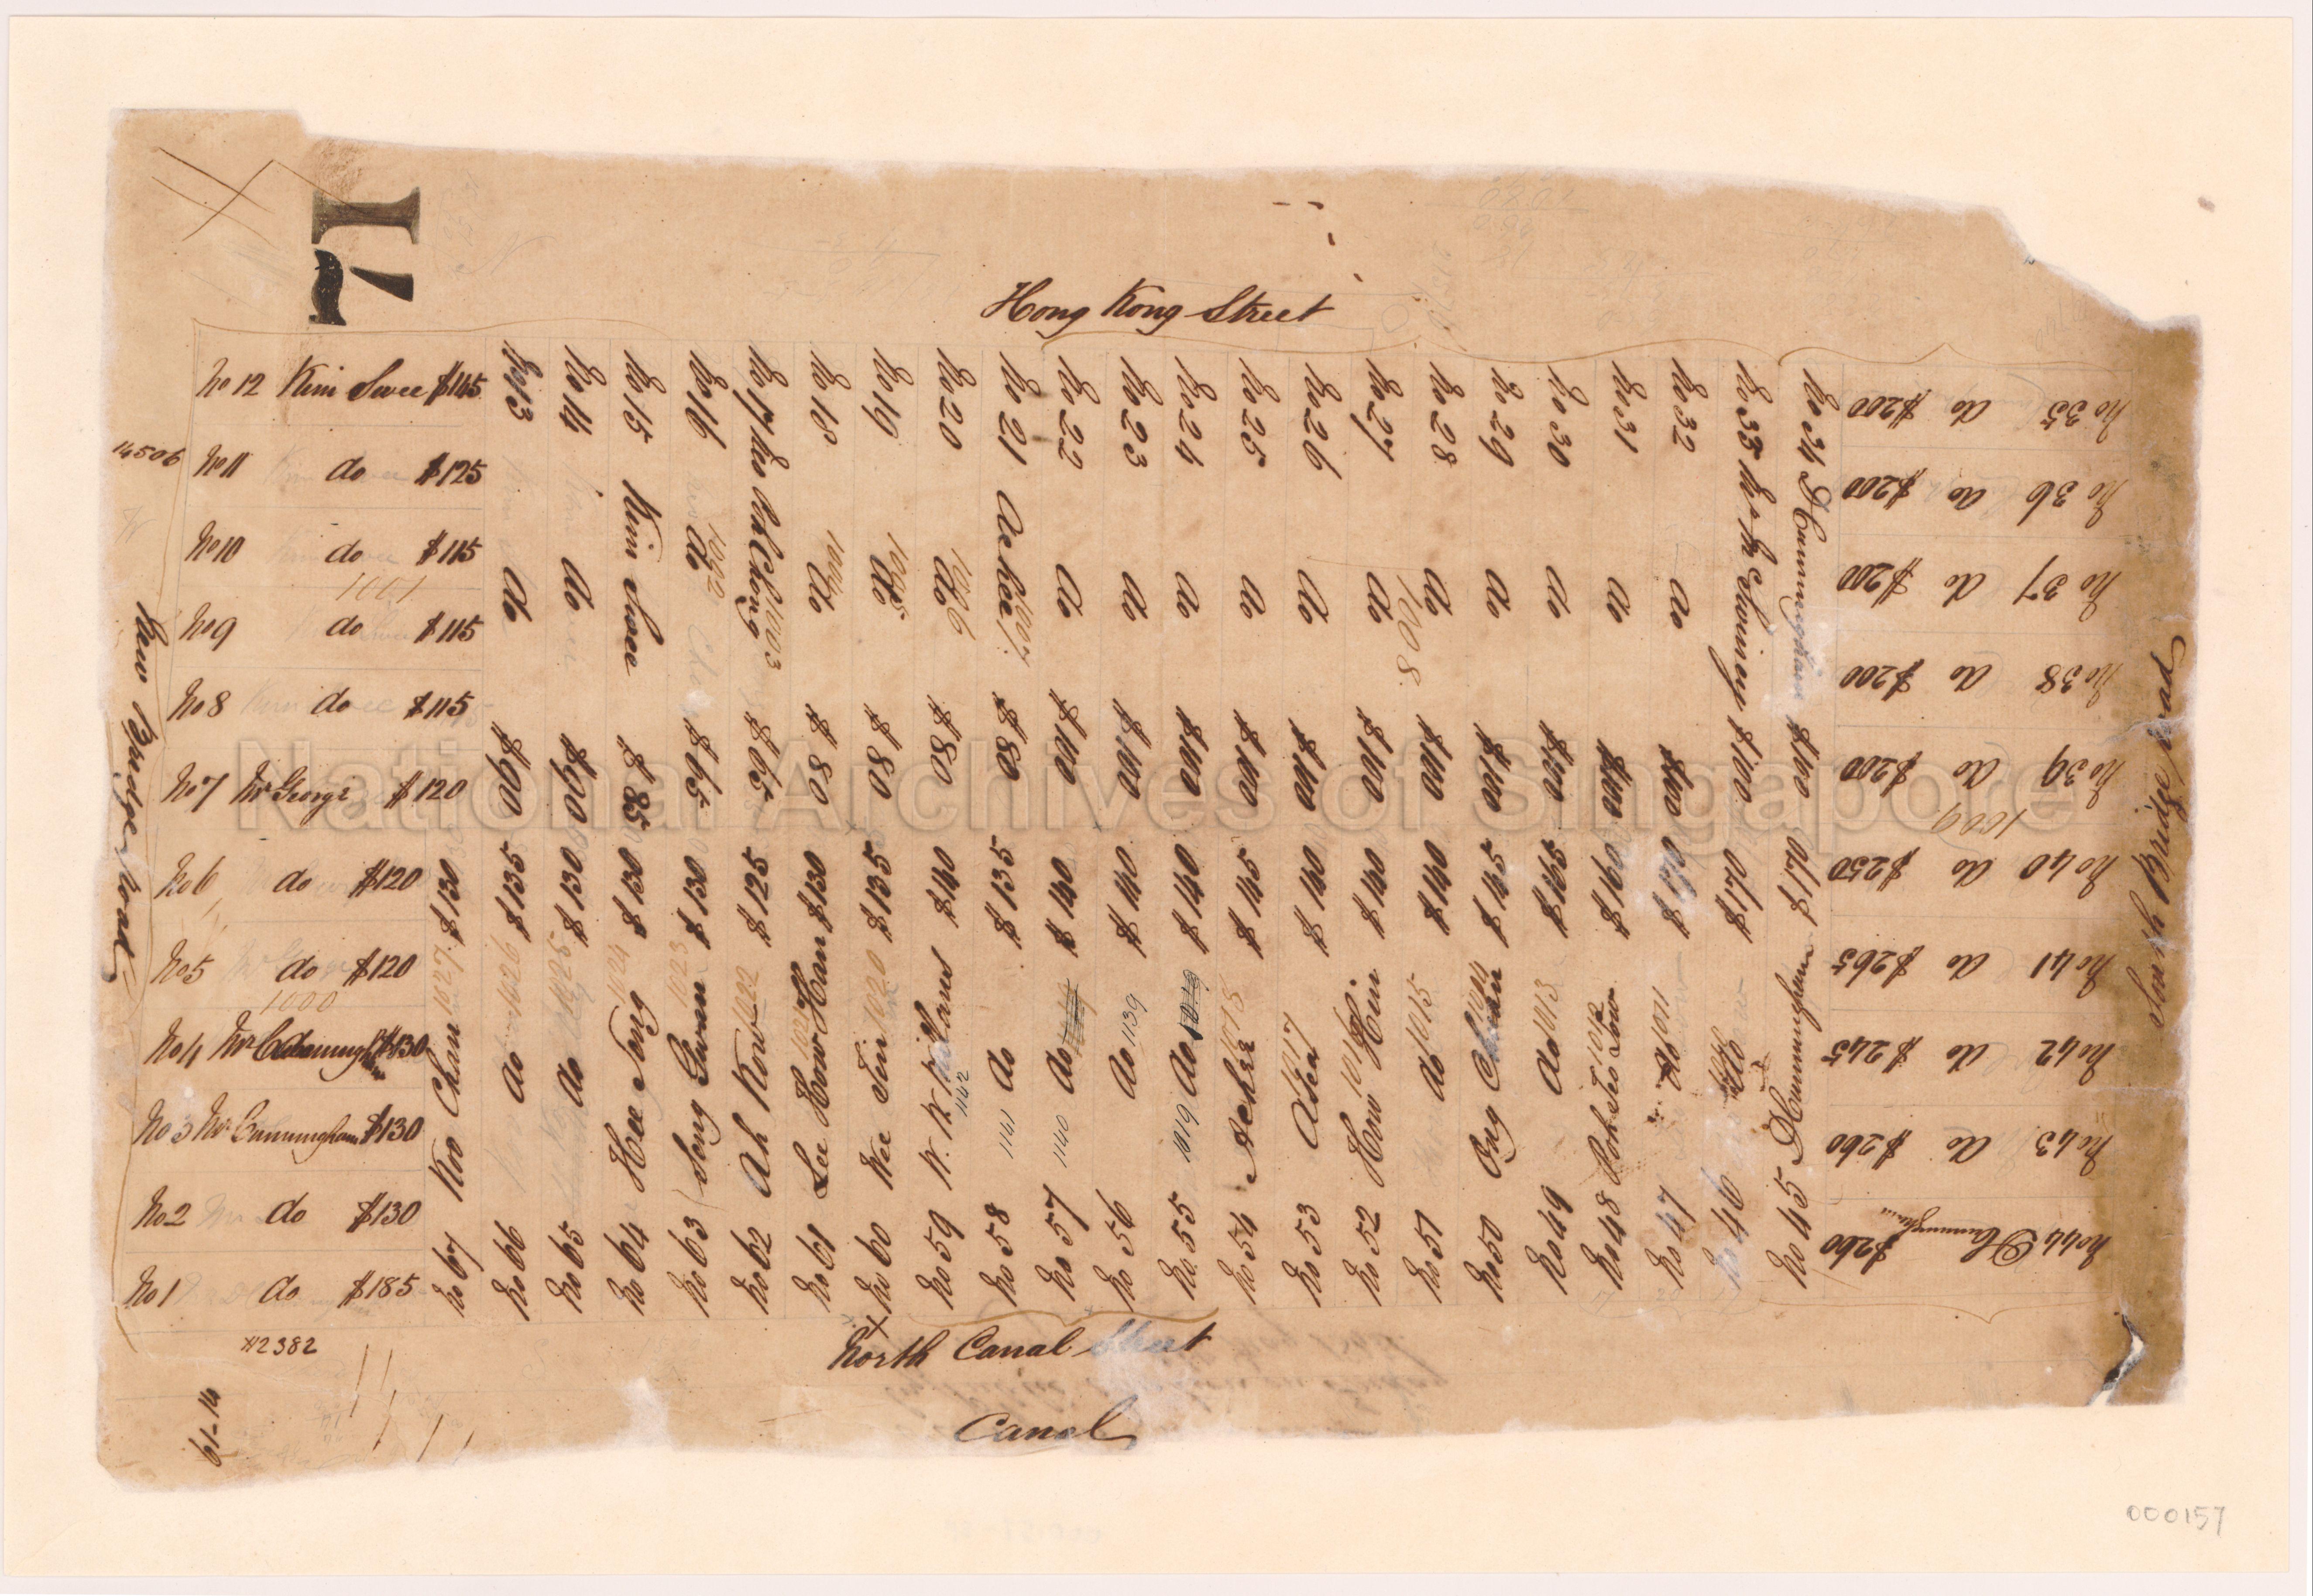 71
Hong Kong Street
No 12 Kim Swee $145
No 11 do $125
No 10 do $115
1001
No 9 do $115
No 8 do $115
No 7 Mr George $120
No 6 do $120
No 5 do $120
1000
No 4 Mr $130
No 3 Mr Cunningham $130
No 2 do $130
No 1 do $185
14506
New Bridge Road
No 13 do $90
No 14 do $90
No 15 Kim Swee $85
No 16 do 1002 $65
No 17 1003 $65
No 18 do $80
No 19 do 1005 $80
No 20 do 1006 $80
No 21 Achee 1007 $80
No 22 do $100
No 23 do $100
No 24 do $100
No 25 do $100
No 26 do $100
No 27 do $100
No 28 do $100
1008
No 29 do $100
No 30 do $100
No 31 do $100
No 32 do $100
No 33 $100
No 34 D Cunningham $100
No 35 do $200
No 36 do $200
No 37 do $200
No 38 do $200
No 39 do $200
1009
No 40 do $250
No 41 do $265
No 42 do $245
No 43 do $260
No 44 D Cunningham $260
South Bridge Road
No 67 Koo Chan 1027 $130
No 66 do 1026 $135
No 65 do 1025 $130
No 64 Hee Song 1024 $130
No 63 Song Guan 1023 $130
No 62 Ah Kow 1022 $125
No 61 Lee How Han 1021 $130
No 60 Wee Tin 1020 $135
No 59 1142 $140
No 58 do 1141 $135
No 57 do 1140 $140
No 56 do 1139 $140
No 55 do 1019 $140
No 54 Achee 1018 $145
No 53 1017 $140
No 52 1016 $140
No 51 do 1015 $140
No 50 Ong 1014 $145
No 49 do 1013 $165
No 48 1012 $160
No 47 do 1011
No 46 do
No 45 D Cunningham
North Canal Street
Canal
#2382
61-14
000157
National Archives of Singapore